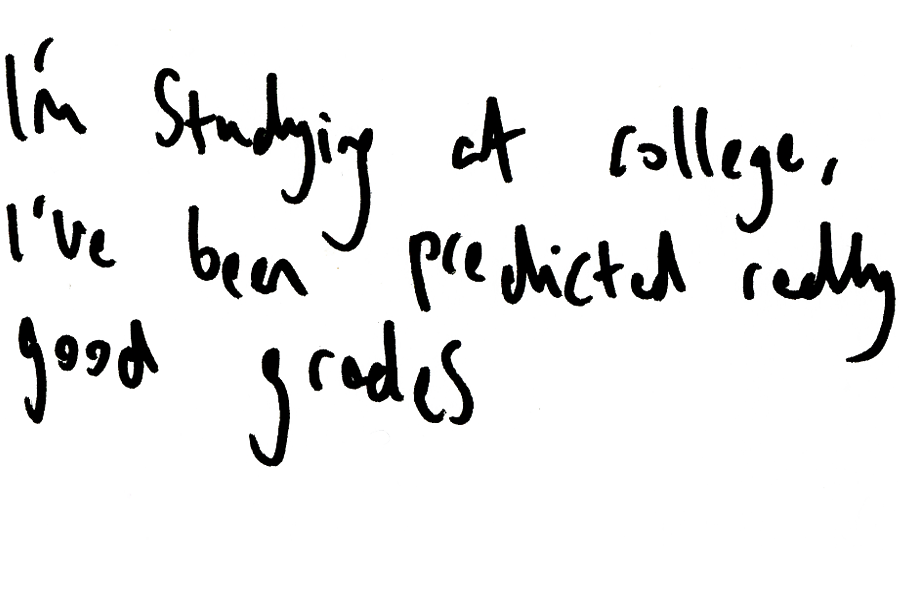 I'm studying at college,
I've been predicted really
good grades